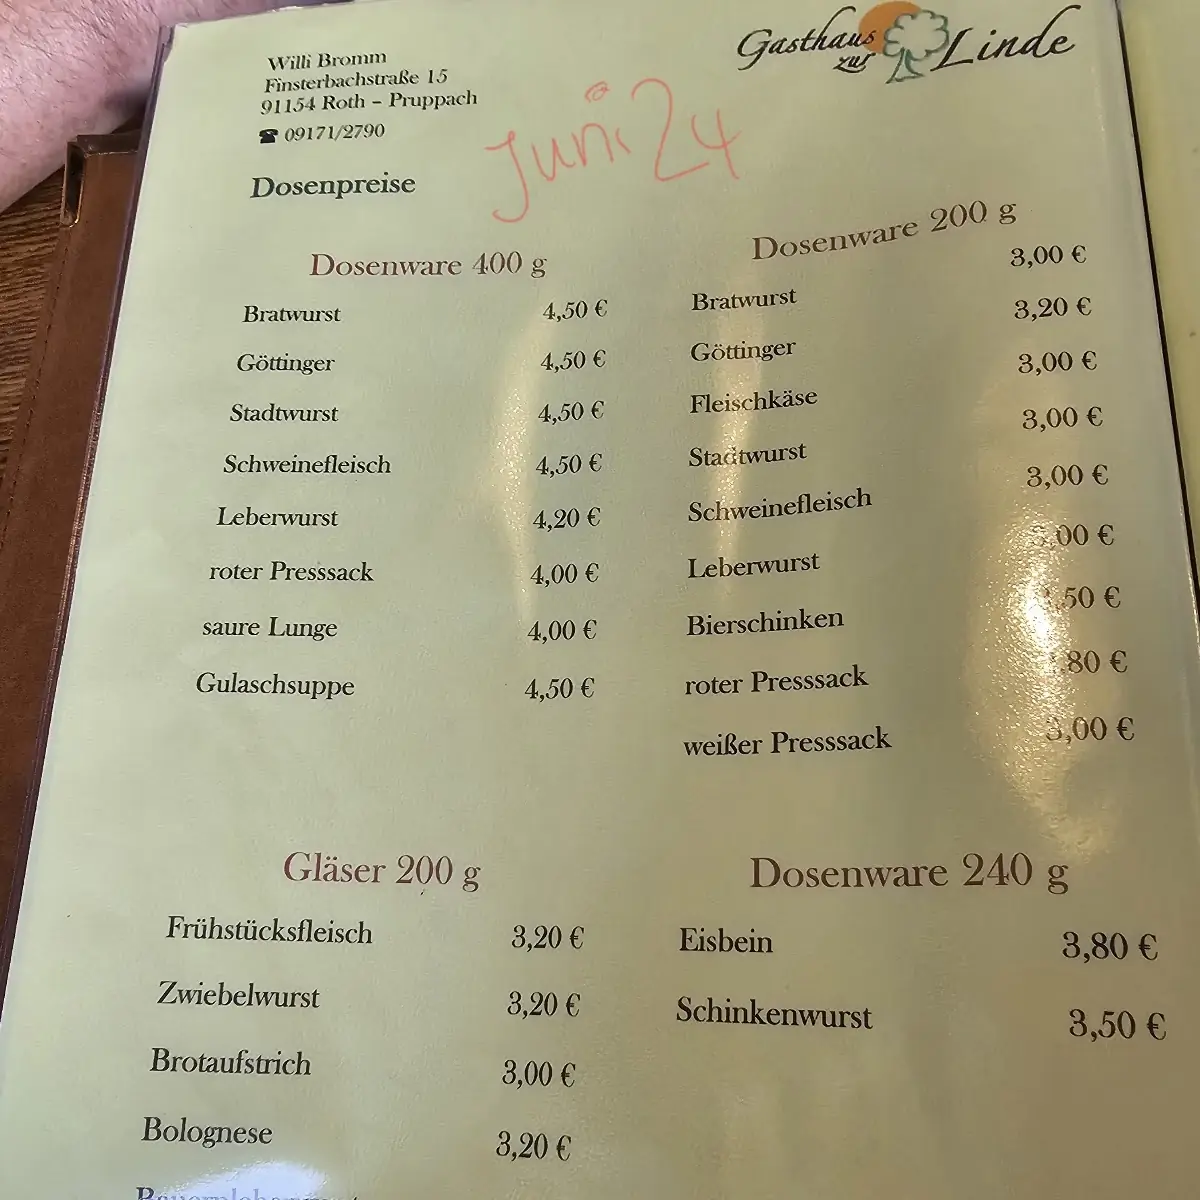 Willi Bromm
Finsterbachstraße 15
91154 Roth – Pruppach
☎ 09171/2790
Gasthaus zur Linde
Juni 24
Dosenpreise
Dosenware 400 g
Bratwurst 4,50 €
Göttinger 4,50 €
Stadtwurst 4,50 €
Schweinefleisch 4,50 €
Leberwurst 4,20 €
roter Presssack 4,00 €
saure Lunge 4,00 €
Gulaschsuppe 4,50 €
Dosenware 200 g
Bratwurst 3,00 €
Göttinger 3,20 €
Fleischkäse 3,00 €
Stadtwurst 3,00 €
Schweinefleisch 3,00 €
Leberwurst ,00 €
Bierschinken ,50 €
roter Presssack 80 €
weißer Presssack 3,00 €
Gläser 200 g
Frühstücksfleisch 3,20 €
Zwiebelwurst 3,20 €
Brotaufstrich 3,00 €
Bolognese 3,20 €
Dosenware 240 g
Eisbein 3,80 €
Schinkenwurst 3,50 €